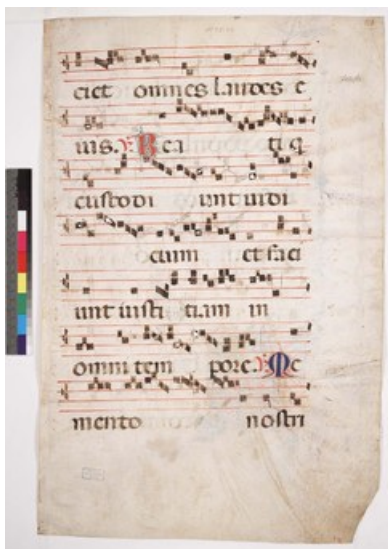 ciet omnes laudes e
ius. ℣ Bea ti q
custodi unt iudi
cium et faci
unt iusti tiam in
omni tem pore. ℣ Me
mento nostri